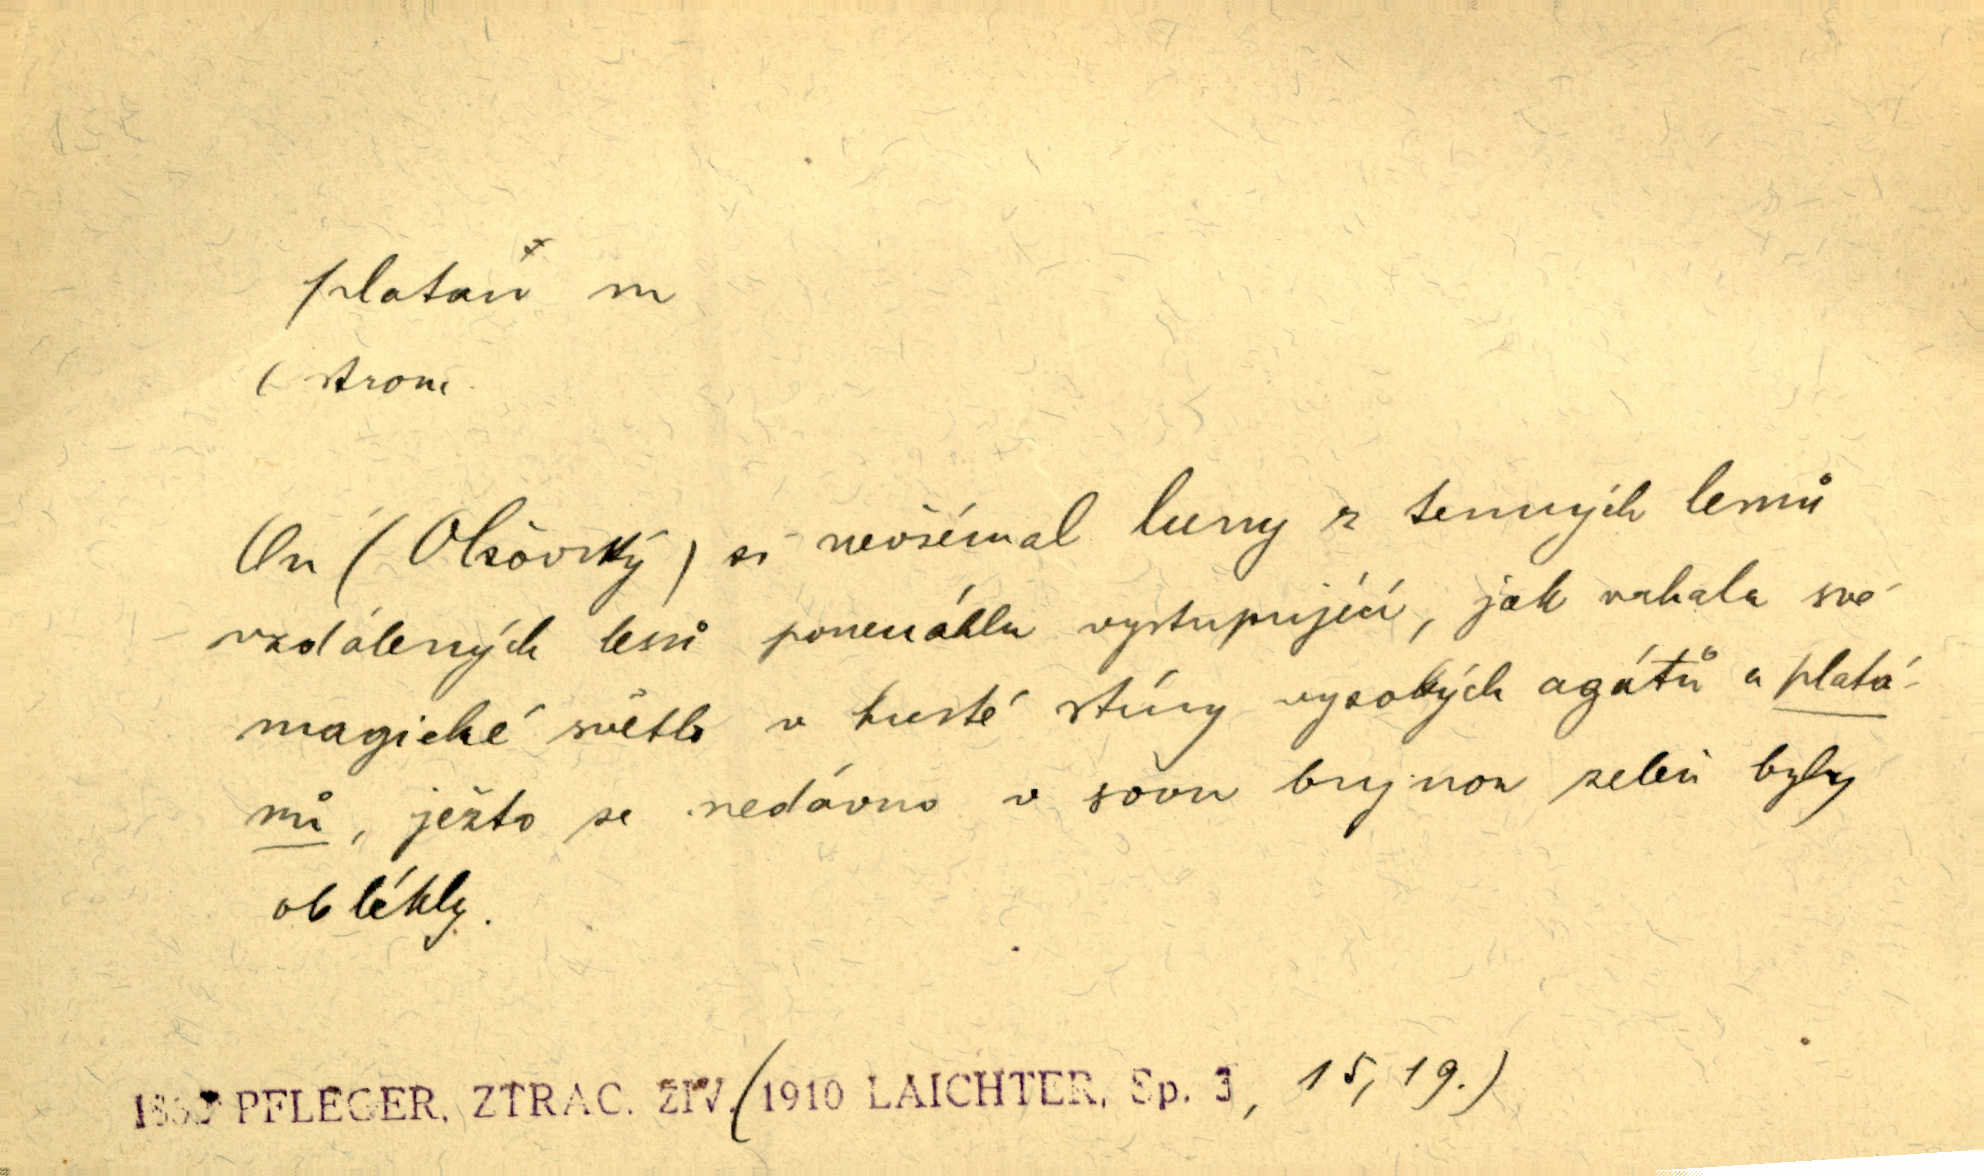 platan m
( strom
On (Olšovský) si nevšímal luny z temných lemů
vzdálených lesů ponenáhlu vystupující, jak vrhala své
magické světlo v husté stíny vysokých agátů a platá-
nů, ježto se nedávno v novu bujnou zeleň byly
oblékly.
PFLEGER, ZTRAC. ŽIV. (1910 LAICHTER, Sp. 3, 15, 19.)